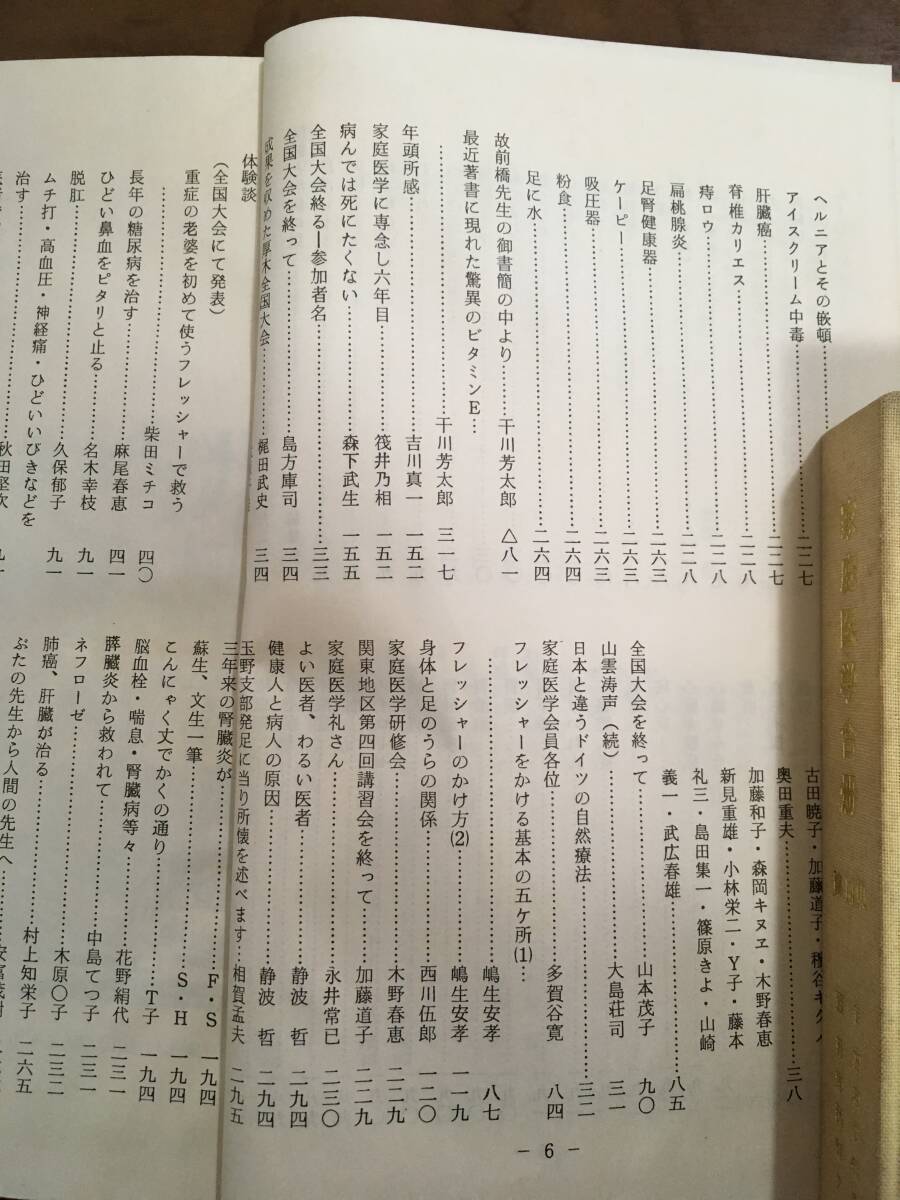 ヘルニアとその嵌頓
アイスクリーム中毒……二二七
肝臓癌……二二七
脊椎カリエス……二二八
痔ロウ……二二八
扁桃腺炎……二二八
足腎健康器……二六三
ケーピー……二六三
吸圧器……二六三
粉食……二六四
足に水……二六四
故前橋先生の御書簡の中より……干川芳太郎 △八一
最近著書に現れた驚異のビタミンE…
……干川芳太郎 三一七
年頭所感……吉川真一 一五二
家庭医学に専念し六年目……筏井乃相 一五二
病んでは死にたくない……森下武生 一五五
全国大会終る―参加者名……三三
全国大会を終って……島方庫司 三四
成果を収めた厚木全国大会……梶田武史 三四
体験談
(全国大会にて発表)
重症の老婆を初めて使うフレッシャーで救う
……柴田ミチコ 四〇
長年の糖尿病を治す……麻尾春恵 四一
ひどい鼻血をピタリと止る……名木幸枝 九一
脱肛……久保郁子 九一
ムチ打・高血圧・神経痛・ひどいいびきなどを
治す……秋田堅次 九一
古田暁子・加藤道子・
奥田重夫……三八
加藤和子・森岡キヌヱ・木野春恵
新見重雄・小林栄二・Y子・藤本
礼三・島田集一・篠原きよ・山崎
義一・武広春雄……八五
全国大会を終って……山本茂子 九〇
山雲涛声(続)……大島荘司 三一
日本と違うドイツの自然療法……三二
家庭医学会員各位……多賀谷寛 八四
フレッシャーをかける基本の五ケ所(1)…
……嶋生安孝 八七
フレッシャーのかけ方(2)……嶋生安孝 一一九
身体と足のうらの関係……西川伍郎 一二〇
家庭医学研修会……木野春恵 二二九
関東地区第四回講習会を終って……加藤道子 二二九
家庭医学礼さん……永井常已 二三〇
よい医者、わるい医者……静波 哲 二九四
健康人と病人の原因……静波 哲 二九四
玉野支部発足に当り所懐を述べます…相賀孟夫 二九五
三年来の腎臓炎が……F・S 一九四
蘇生、文生一筆……S・H 一九四
こんにゃく丈でかくの通り……T子 一九四
脳血栓・喘息・腎臓病等々……花野絹代 二三一
膵臓炎から救われて……中島てつ子 二三一
ネフローゼ……木原〇子 二三二
肺癌、肝臓が治る……村上知栄子 二六五
ぶたの先生から人間の先生へ……
― 6 ―
家庭医学合冊